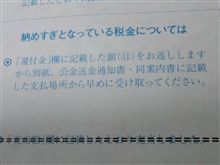 納めすぎとなっている税金については
◉「還付金」欄に記載した額(⑪)をお返ししますから
別紙、公金送金通知書・同案内書に記載
した支払場所から早めに受け取ってください。